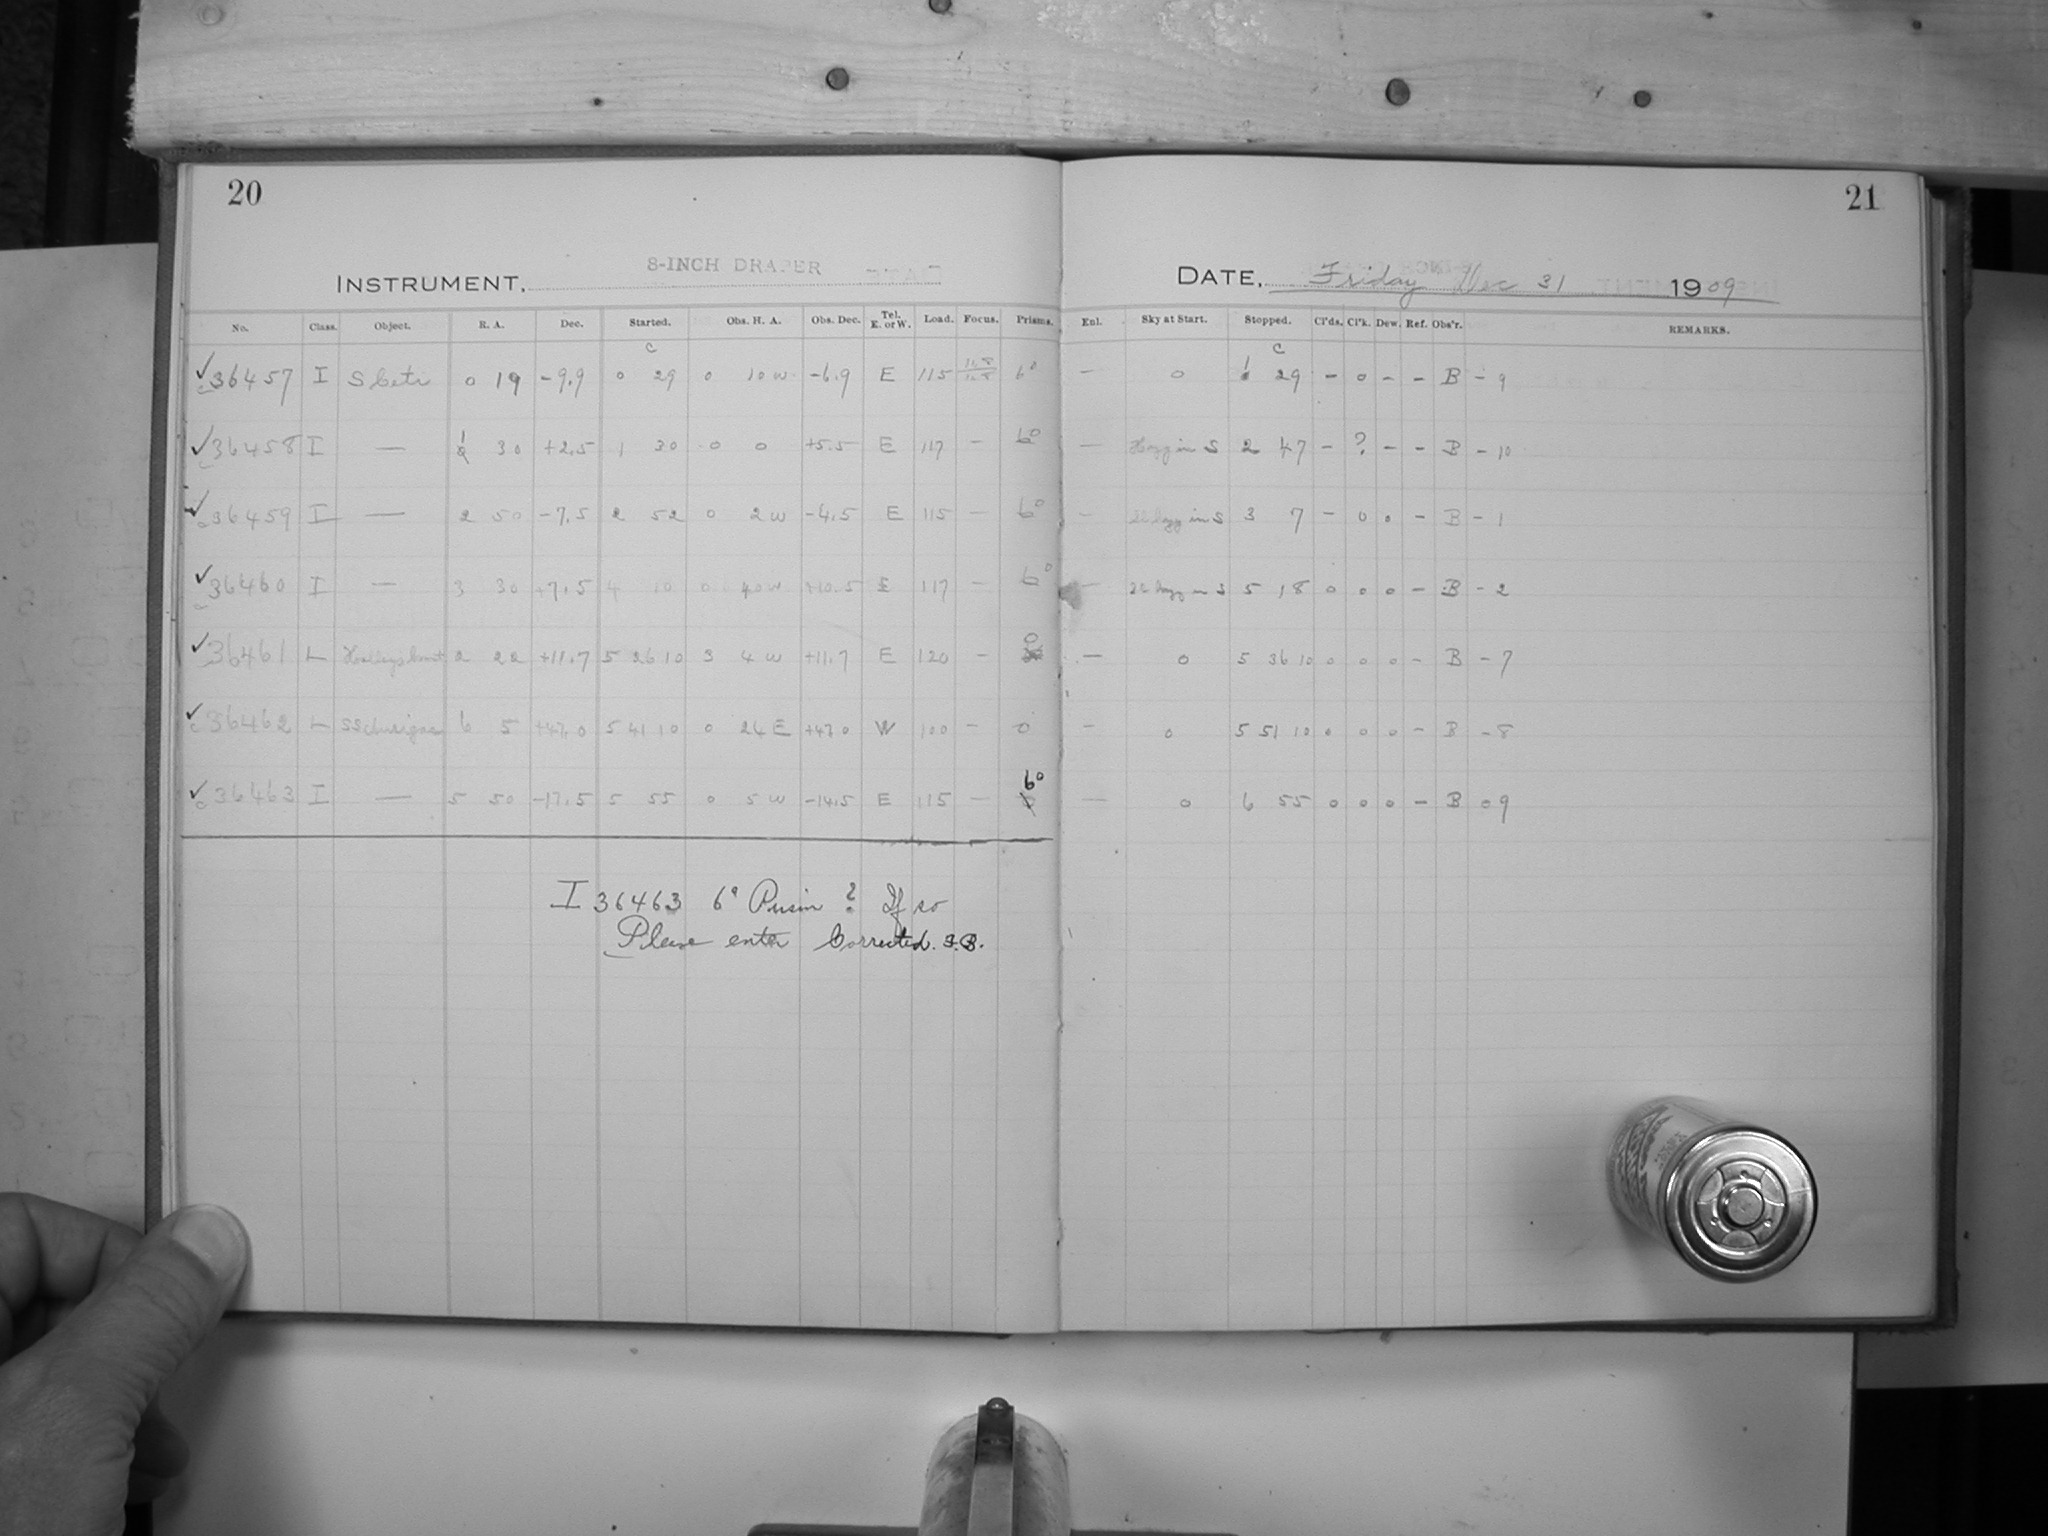 20
21
INSTRUMENT, 8-INCH DRAPER
DATE, Friday Dec 31 1909
No. Class. Object. R. A. Dec. Started. Obs. H. A. Obs. Dec. Tel. E. or W. Load. Focus. Prisms. Enl. Sky at Start. Stopped. Cl'ds. Cl'k. Dew. Ref. Obs'r. REMARKS.
c c
✓36457 I S Ceti 0 19 -9.9 0 29 0 10 w -6.9 E 115 6° — 0 1 29 - 0 - - B - 9
✓36458 I — 1 30 +2.5 1 30 0 0 +5.5 E 117 - 6° — Hazy in S 2 47 - ? - - B - 10
✓36459 I — 2 50 -7.5 2 52 0 2 w -4.5 E 115 - 6° - in S 3 7 - 0 0 - B - 1
✓36460 I — 3 30 +7.5 4 10 0 40 w +10.5 E 117 - 6° — in S 5 18 0 0 0 - B - 2
✓36461 L Halleys Comet 2 22 +11.7 5 26 10 3 4 w +11.7 E 120 - 0 — 0 5 36 10 0 0 0 - B - 7
✓36462 L SS Aurigae 6 5 +47.0 5 41 10 0 24 E +47.0 W 100 - 0 - 0 5 51 10 0 0 0 - B - 8
✓36463 I — 5 50 -17.5 5 55 0 5 w -14.5 E 115 - 6° — 0 6 55 0 0 0 - B 0 9
I 36463 6° Prism ? If so
Please enter Corrected. S.B.